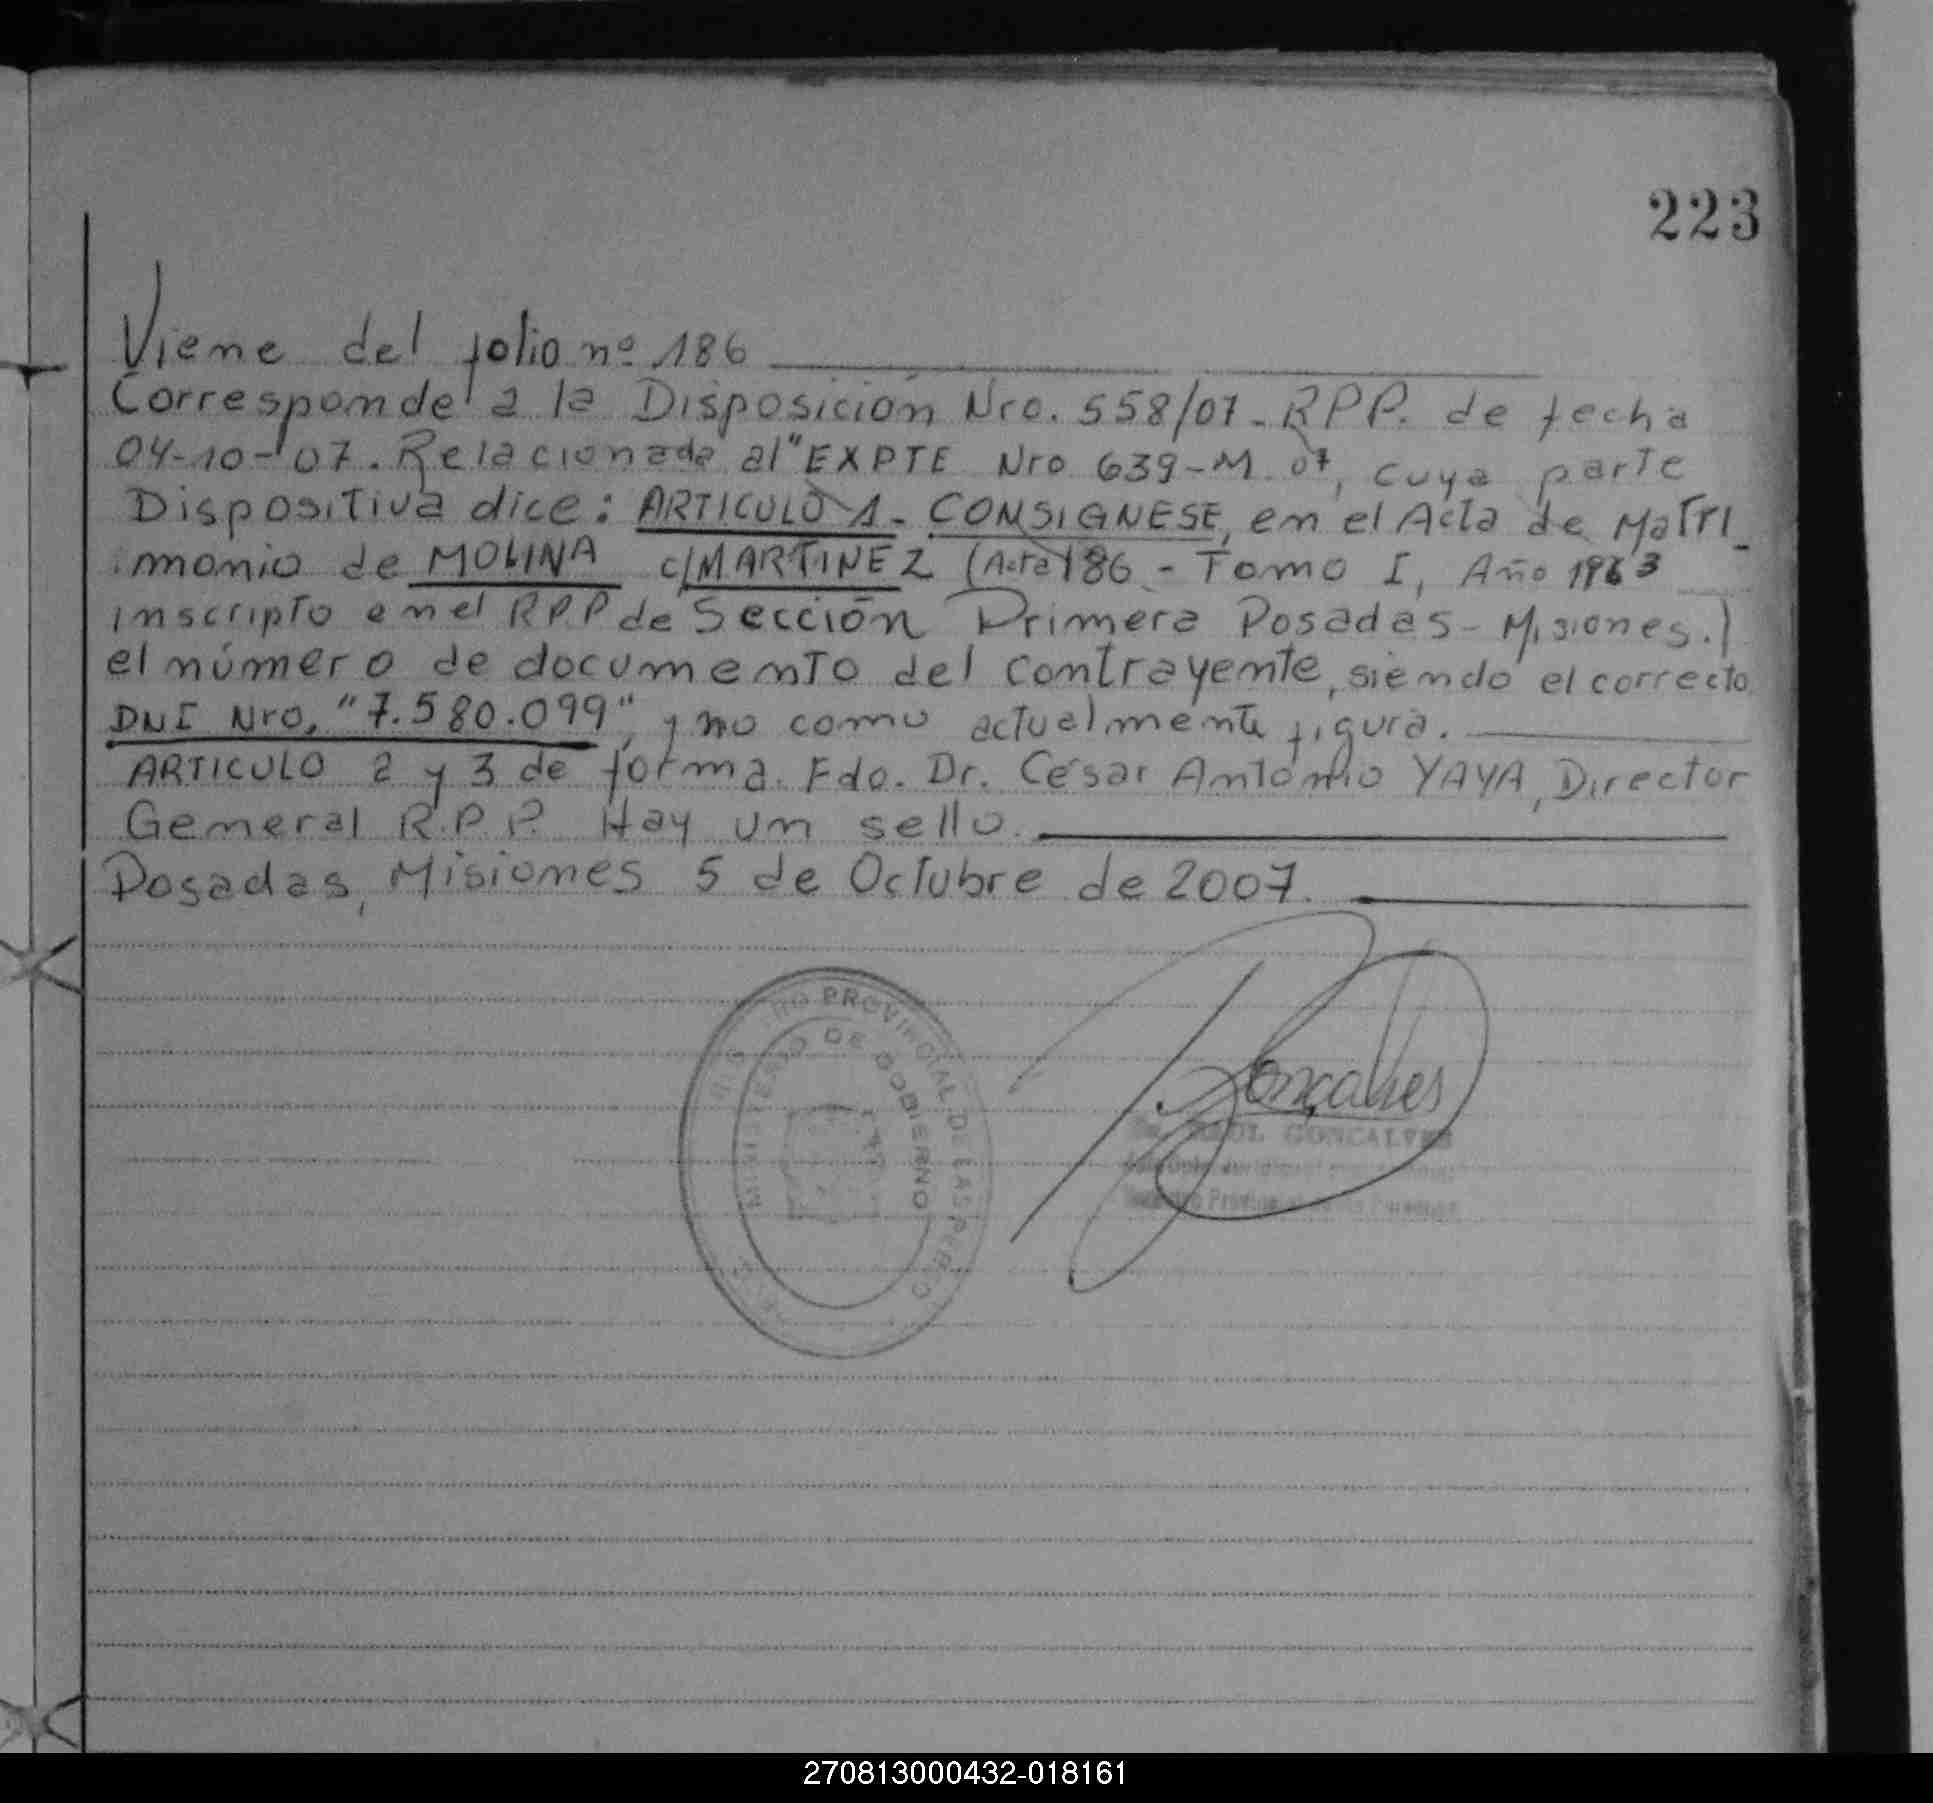 223
Viene del folio nº 186
Corresponde a la Disposición Nro. 558/07-RPP. de fecha
04-10-07. Relacionada al "EXPTE Nro 639-M.07, cuya parte
Dispositiva dice: ARTICULO 1. CONSIGNESE, en el Acta de Matri_
monio de MOLINA c/MARTINEZ (Acta 186 - Tomo I, Año 1963
inscripto en el RPP de Sección Primera Posadas - Misiones.)
el número de documento del contrayente, siendo el correcto
DNI Nro, "7.580.099", y no como actualmente figura.
ARTICULO 2 y 3 de forma. Fdo. Dr. César Antonio YAYA, Director
General R.P.P. Hay un sello.
Posadas, Misiones 5 de Octubre de 2007.
PROVINCIAL DE LAS PERSO
MINISTERIO DE GOBIERNO
Gonçalves
GONCALVES